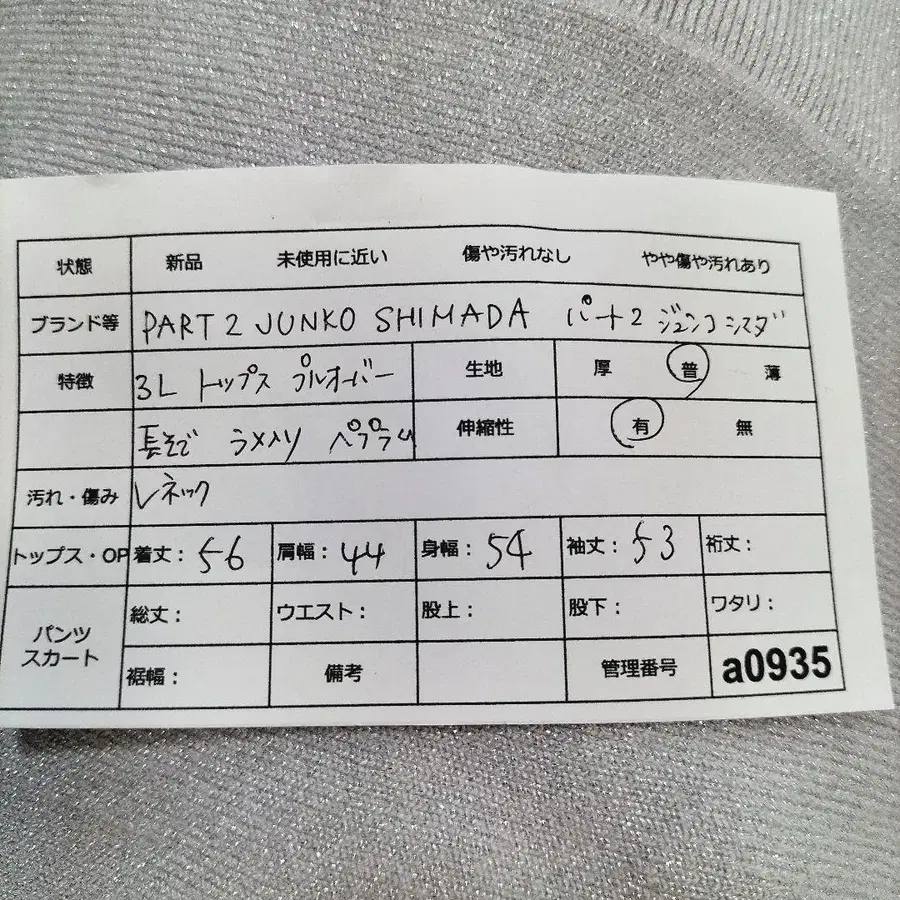 状態 新品 未使用に近い 傷や汚れなし やや傷や汚れあり
ブランド等 PART 2 JUNKO SHIMADA パート2 ジュンコシマダ
特徴 3L トップス プルオーバー 生地 厚 普 薄
長そで ラメ入り ペプラム 伸縮性 有 無
汚れ・傷み Vネック
トップス・OP 着丈：56 肩幅：44 身幅：54 袖丈：53 裄丈：
パンツ スカート 総丈： ウエスト： 股上： 股下： ワタリ：
裾幅： 備考 管理番号 a0935